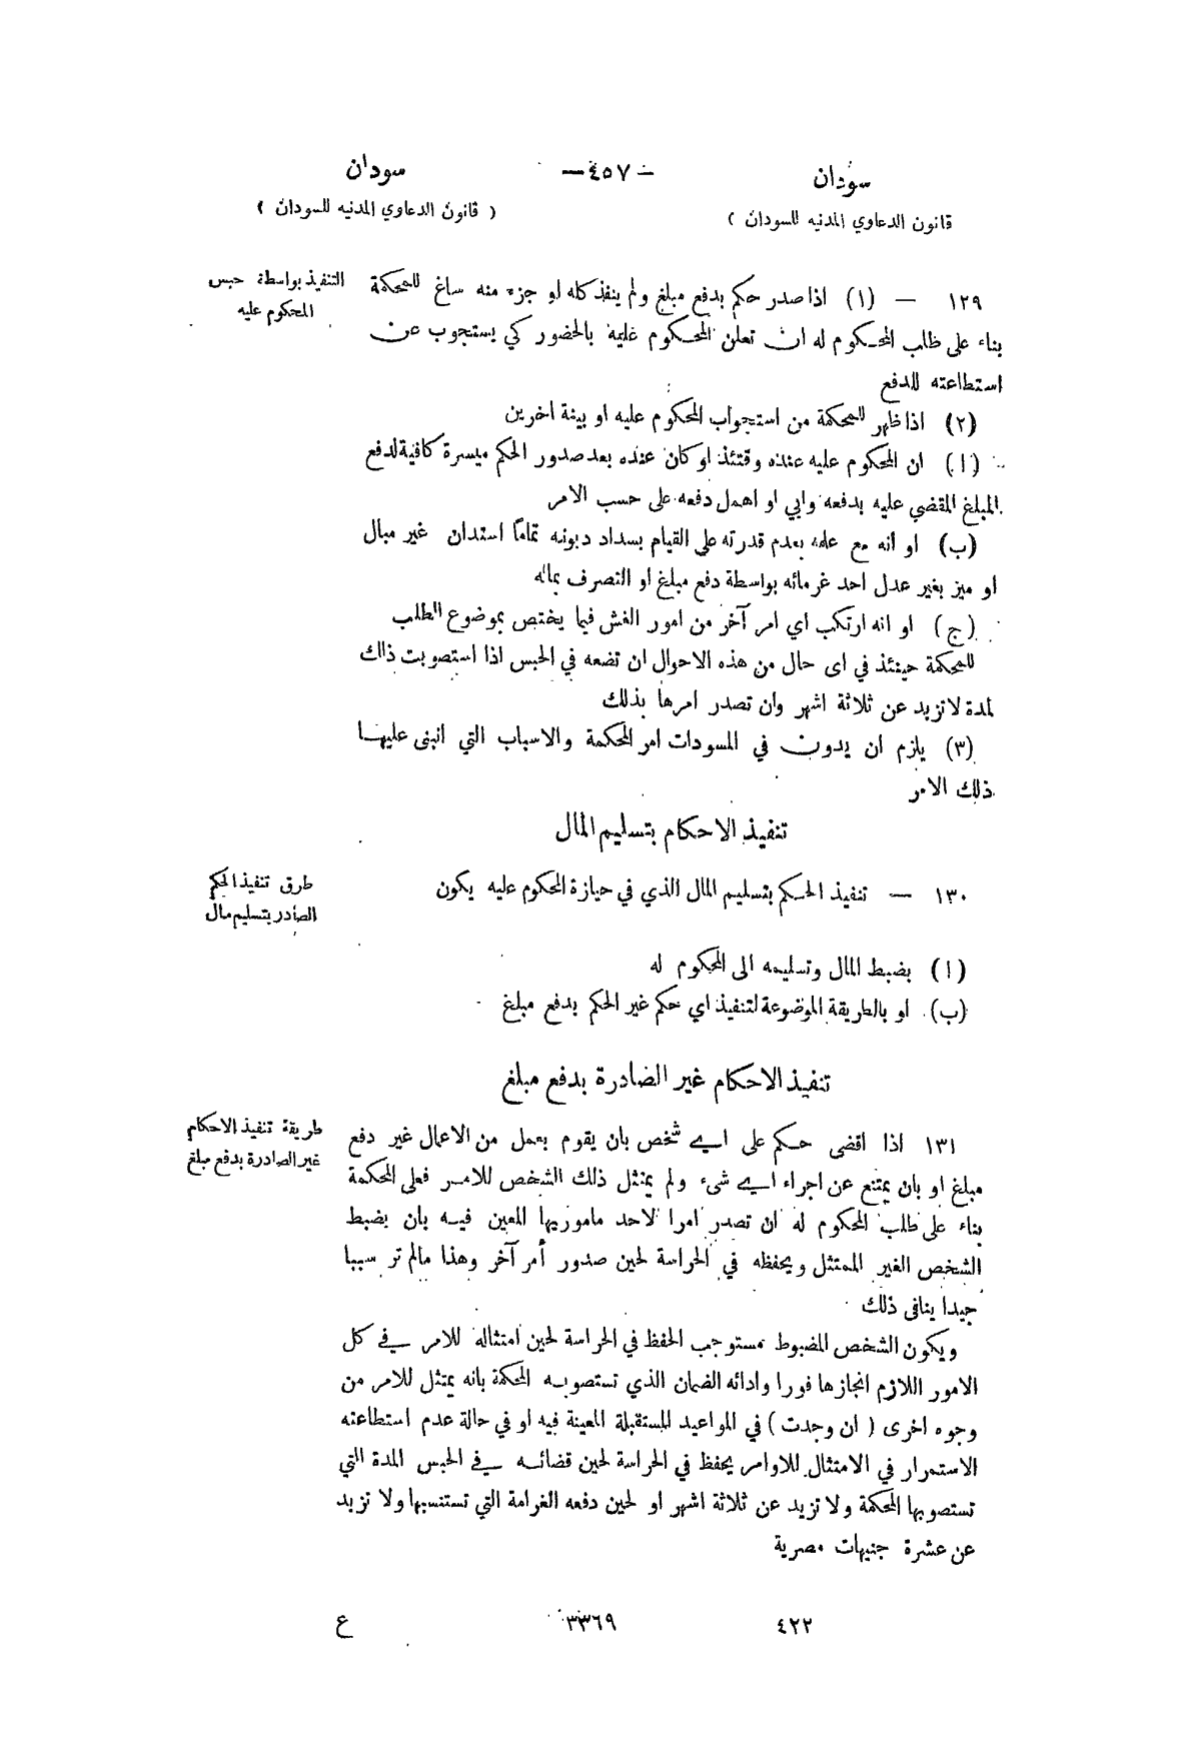 سودان
—٤٥٧—
سودان
قانون الدعاوي المدنيه للسودان )
( قانون الدعاوي المدنيه للسودان )
١٢٩ — (١) اذا صدر حكم بدفع مبلغ ولم ينفذ كله او جزء منه ساغ للمحكمة
التنفيذ بواسطة حبس
المحكوم عليه
بناء على طلب المحكوم له ان تعلن المحكوم عليه بالحضور كي يستجوب عن
استطاعته للدفع
(٢) اذا ظهر للمحكمة من استجواب المحكوم عليه او بينة اخرين
(ا) ان المحكوم عليه عنده وقتئذ او كان عنده بعد صدور الحكم ميسرة كافية لدفع
المبلغ المقضي عليه بدفعه وابي او اهمل دفعه على حسب الامر
(ب) او أنه مع علمه بعدم قدرته على القيام بسداد ديونه تماماً استدان غير مبال
او ميز بغير عدل احد غرمائه بواسطة دفع مبلغ او التصرف بماله
(ج) او انه ارتكب اي امر آخر من امور الغش فيما يختص بموضوع الطلب
للمحكمة حينئذ في اى حال من هذه الاحوال ان تضعه في الحبس اذا استصوبت ذالك
لمدة لا تزيد عن ثلاثة اشهر وان تصدر امرها بذلك
(٣) يلزم ان يدون في المسودات امر المحكمة والاسباب التي انبنى عليها
ذلك الامر
تنفيذ الاحكام بتسليم المال
١٣٠ — تنفيذ الحكم بتسليم المال الذي في حيازة المحكوم عليه يكون
طرق تنفيذ الحكم
الصادر بتسليم مال
(ا) بضبط المال وتسليمه الى المحكوم له
(ب) او بالطريقة الموضوعة لتنفيذ اي حكم غير الحكم بدفع مبلغ
تنفيذ الاحكام غير الصادرة بدفع مبلغ
١٣١ اذا اقضى حكم على اي شخص بان يقوم بعمل من الاعمال غير دفع
طريقة تنفيذ الاحكام
غير الصادرة بدفع مبلغ
مبلغ او بان يمتنع عن اجراء اي شىء ولم يمتثل ذلك الشخص للامر فعلى المحكمة
بناء على طلب المحكوم له ان تصدر امرا لاحد ماموريها المعين فيه بان يضبط
الشخص الغير الممتثل ويحفظه في الحراسة لحين صدور أمر آخر وهذا مالم تر سببا
جيدا ينافى ذلك
ويكون الشخص المضبوط مستوجب الحفظ في الحراسة لحين امتثاله للامر في كل
الامور اللازم انجازها فورا وادائه الضمان الذي تستصوبه المحكمة بانه يمتثل للامر من
وجوه اخرى ( ان وجدت ) في المواعيد المستقبلة المعينة فيه او في حالة عدم استطاعته
الاستمرار في الامتثال للاوامر يحفظ في الحراسة لحين قضائه في الحبس المدة التي
تستصوبها المحكمة ولا تزيد عن ثلاثة اشهر او لحين دفعه الغرامة التي تستنسبها ولا تزيد
عن عشرة جنيهات مصرية
٤٢٢
٣٣٦٩
ع